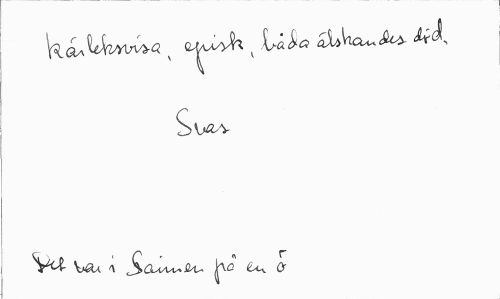 kärleksvisa, episk, båda älskandes död.
Svas
Det var i Saimen på en ö